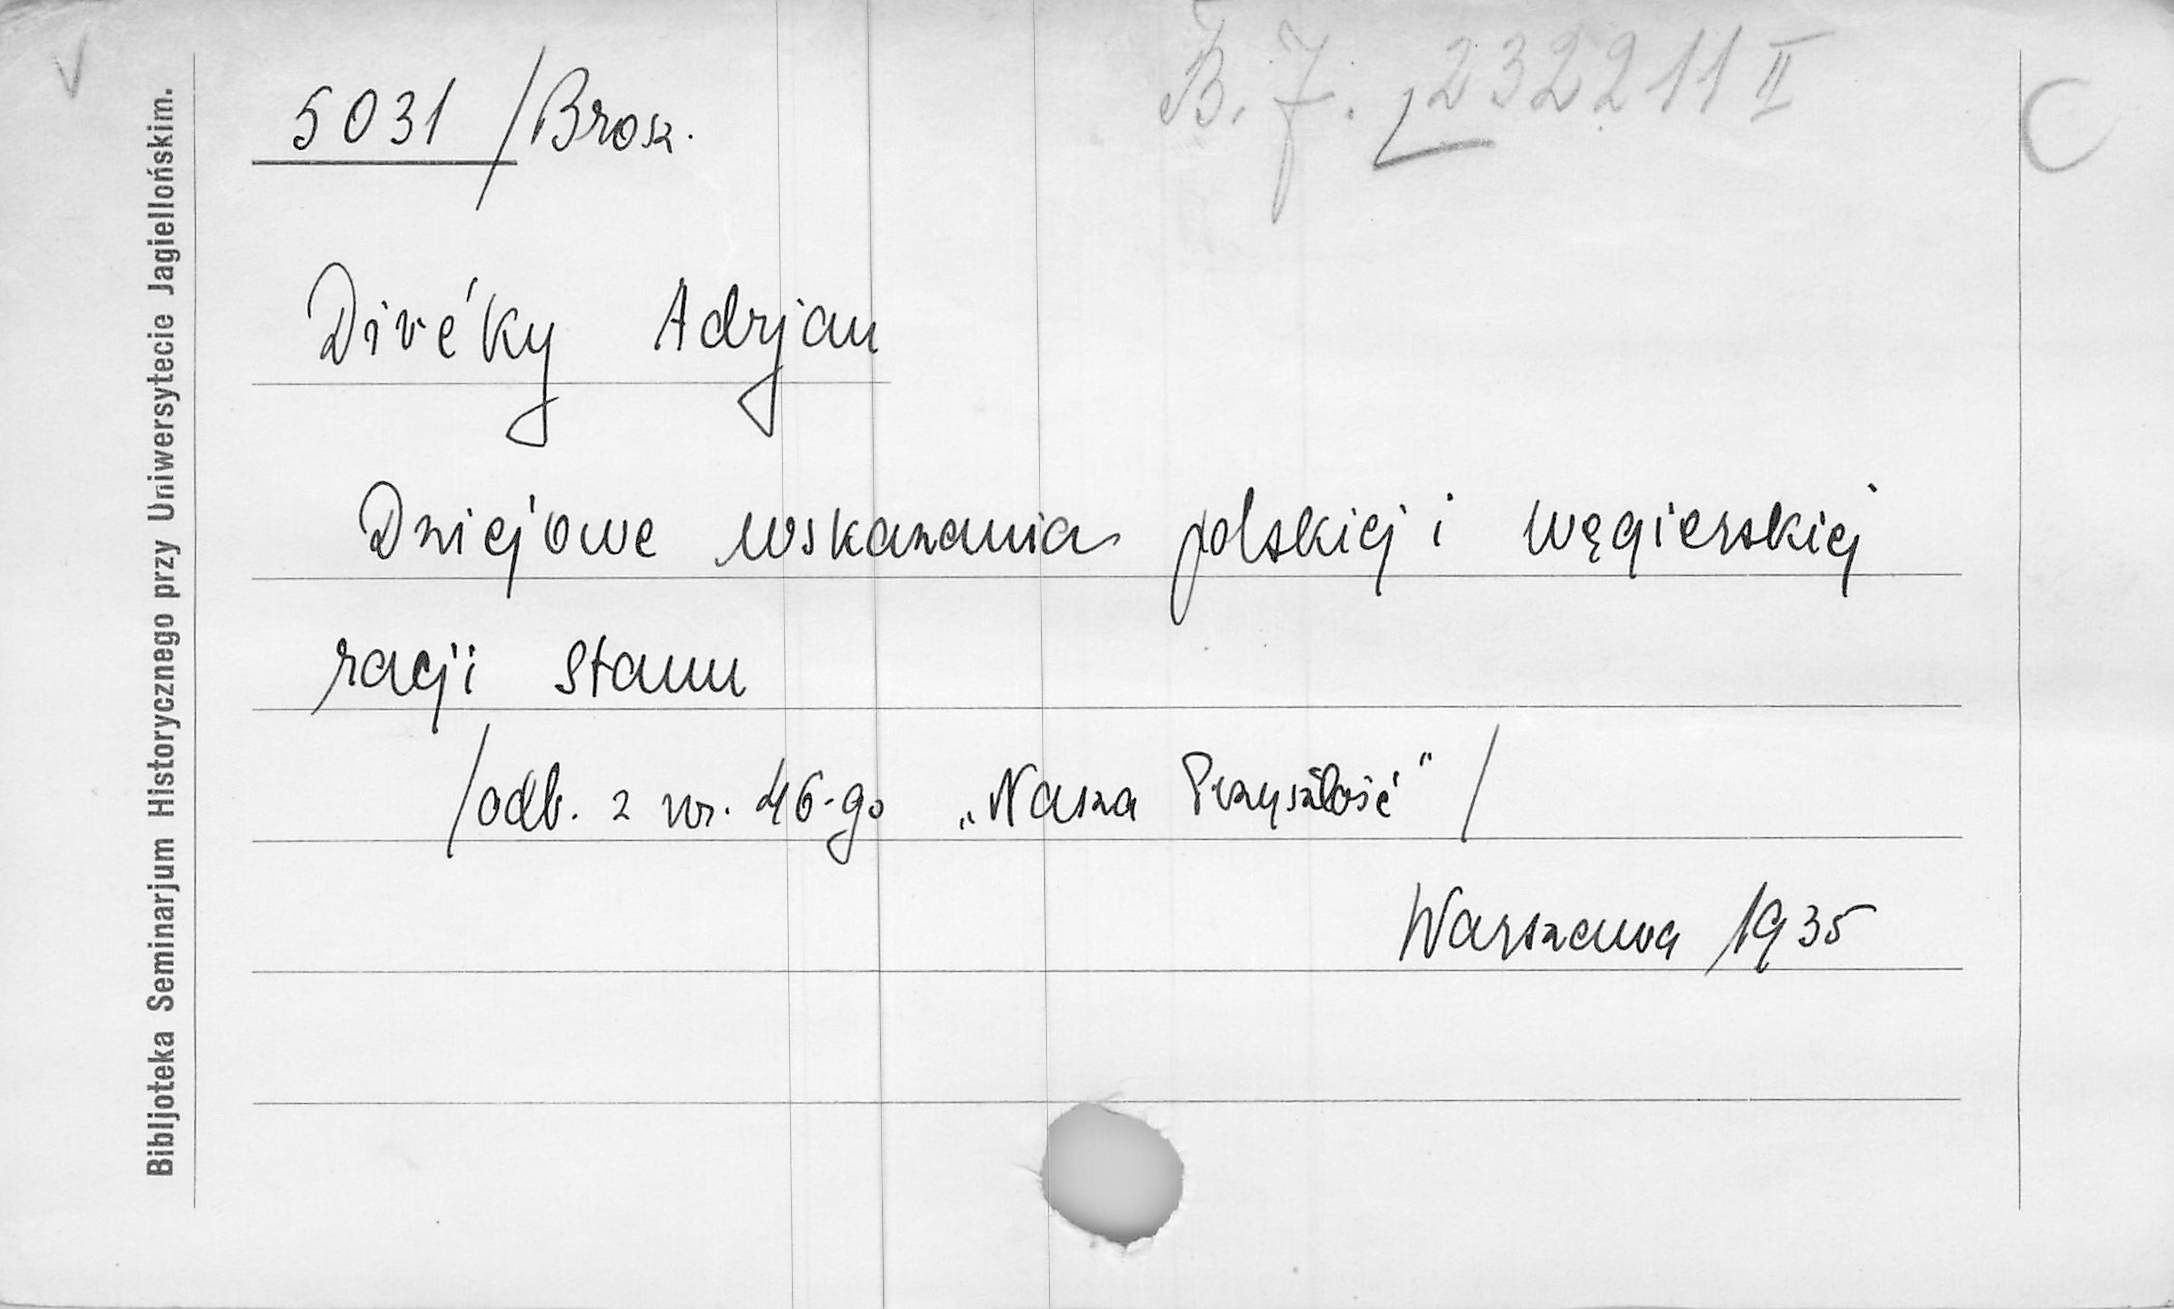 B.J. 232211 II
C
5031/Brosz.
Divéky Adrjan
Dziejowe wskazania polskiej i węgierskiej
racji stanu
/odb. z nr. 46-go „Nasza Przyszłość"/
Warszawa 1935
Bibljoteka Seminarjum Historycznego przy Uniwersytecie Jagiellońskim.